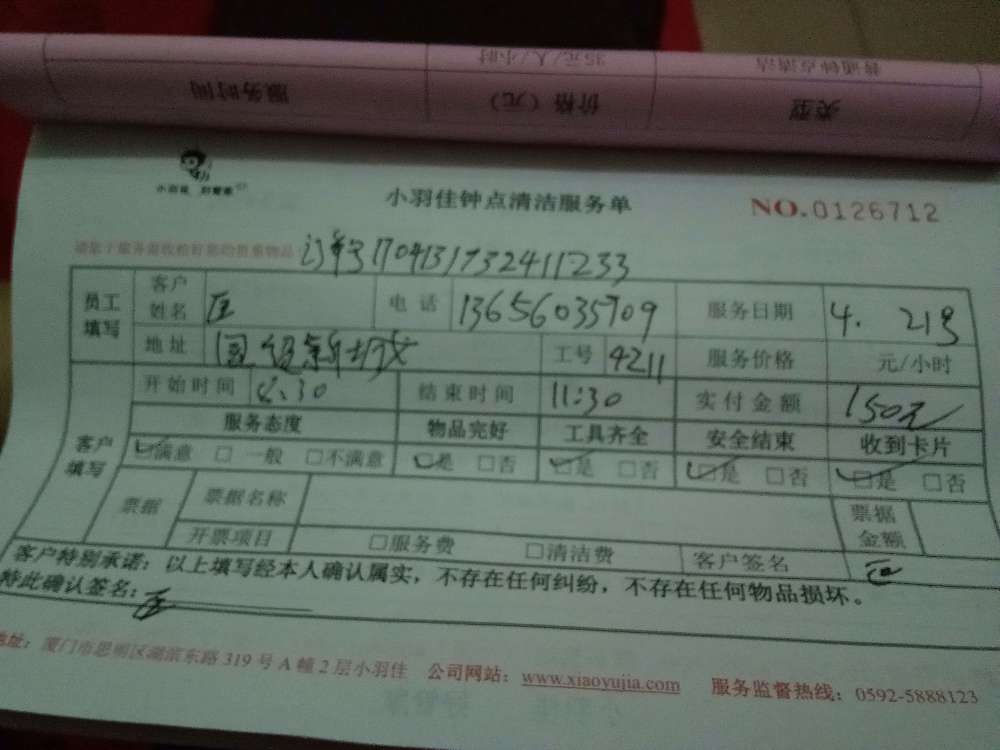 普通钟点清洁 35元/人/小时
类型 价格（元） 服务时间
小羽佳钟点清洁服务单
NO.0126712
请您于服务前收拾好您的贵重物品
订单1704131732411233
员工填写 客户姓名 匡 电话 13656035709 服务日期 4. 21号
地址 工号 4211 服务价格 元/小时
客户填写 开始时间 8:30 结束时间 11:30 实付金额 150元
服务态度 物品完好 工具齐全 安全结束 收到卡片
☑满意 □一般 □不满意 ☑是 □否 ☑是 □否 ☑是 □否 ☑是 □否
票据 票据名称 票据金额
开票项目 □服务费 □清洁费 客户签名 匡
客户特别承诺：以上填写经本人确认属实，不存在任何纠纷，不存在任何物品损坏。
特此确认签名：匡
地址：厦门市思明区湖滨东路319号A幢2层小羽佳 公司网站：www.xiaoyujia.com 服务监督热线：0592-5888123